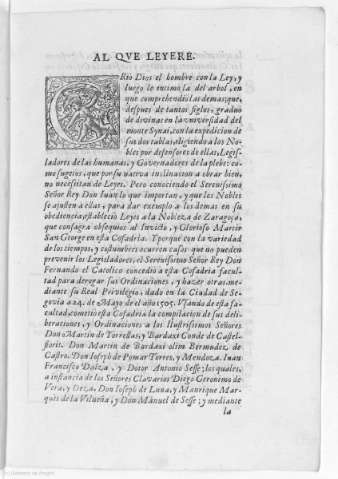 AL QVE LEYERE.
CRiò Dios el hombre con la Ley, y
luego le intimò la del arbol, en
que comprehendiò las demas, que,
despues de tantos siglos, graduò
de divinas en la vniversidad del
monte Synai, con la expedicion de
sus dos tablas, eligiendo a los No
bles por defensores de ellas, Legis-
ladores de las humanas, y Governadores de la plebe: co-
mo sugetos, que por su nativa inclinacion a obrar bien,
no necessitan de Leyes. Pero conociendo el Serenissimo
Señor Rey Don Iuan lo que importan, y que los Nobles
se ajusten a ellas, para dar exemplo a los demas en su
obediencia, estableciò Leyes a la Nobleza de Zaragoça,
que consagra obsequios al Invicto, y Glorioso Martir
San George en esta Cofadria. Y porque con la variedad
de los tiempos, y costumbres ocurren casos que no pueden
prevenir los Legisladores, el Serenissimo Señor Rey Don
Fernando el Catolico concediò a esta Cofadria facul-
tad para derogar sus Ordinaciones, y hazer otras me-
diante su Real Privilegio, dado en la Ciudad de Se-
govia a 24. de Mayo de el año 1505. Vsando de esta fa-
cultad, cometiò esta Cofadria la compilacion de sus deli-
beraciones, y Ordinaciones a los Ilustrissimos Señores
Don Martin de Torrellas, y Bardaxi Conde de Castel-
florit. Don Martin de Bardaxi olim Bermudez de
Castro. Don Ioseph de Pomar Torres, y Mendoza. Iuan
Francisco y Dotor Antonio Sesse; los quales,
a instancia de los Señores Clavarios Diego Geronimo de
Vera, y Don Ioseph de Luna, y Manrique Mar-
quès de la Vilueña, y Don Manuel de Sesse; y mediante
la